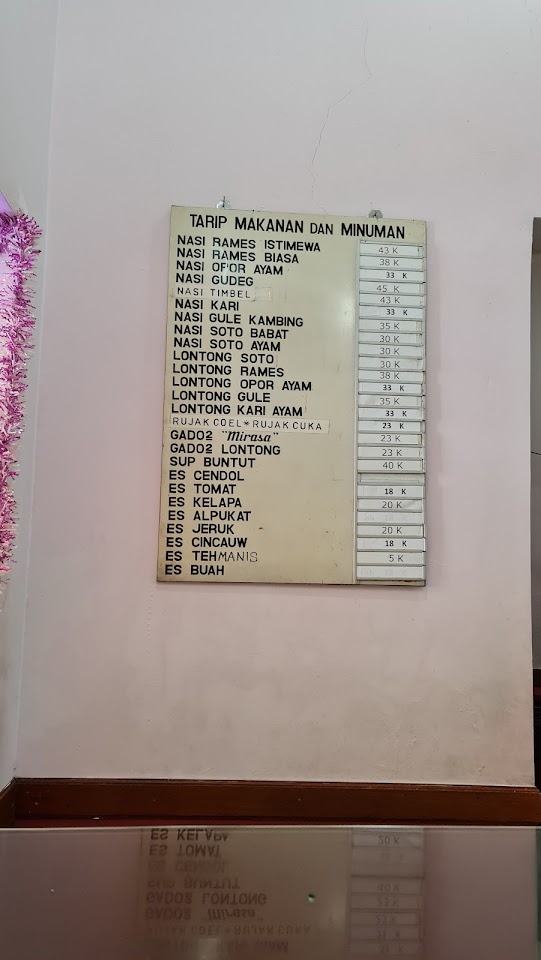 TARIP MAKANAN DAN MINUMAN
NASI RAMES ISTIMEWA 43 K
NASI RAMES BIASA 38 K
NASI OPOR AYAM 33 K
NASI GUDEG 45 K
NASI TIMBEL 43 K
NASI KARI 33 K
NASI GULE KAMBING 35 K
NASI SOTO BABAT 30 K
NASI SOTO AYAM 30 K
LONTONG SOTO 30 K
LONTONG RAMES 38 K
LONTONG OPOR AYAM 33 K
LONTONG GULE 35 K
LONTONG KARI AYAM 33 K
RUJAK COEL * RUJAK CUKA 23 K
GADO2 "Mirasa" 23 K
GADO2 LONTONG 23 K
SUP BUNTUT 40 K
ES CENDOL
ES TOMAT 18 K
ES KELAPA 20 K
ES ALPUKAT
ES JERUK 20 K
ES CINCAUW 18 K
ES TEH MANIS 5 K
ES BUAH